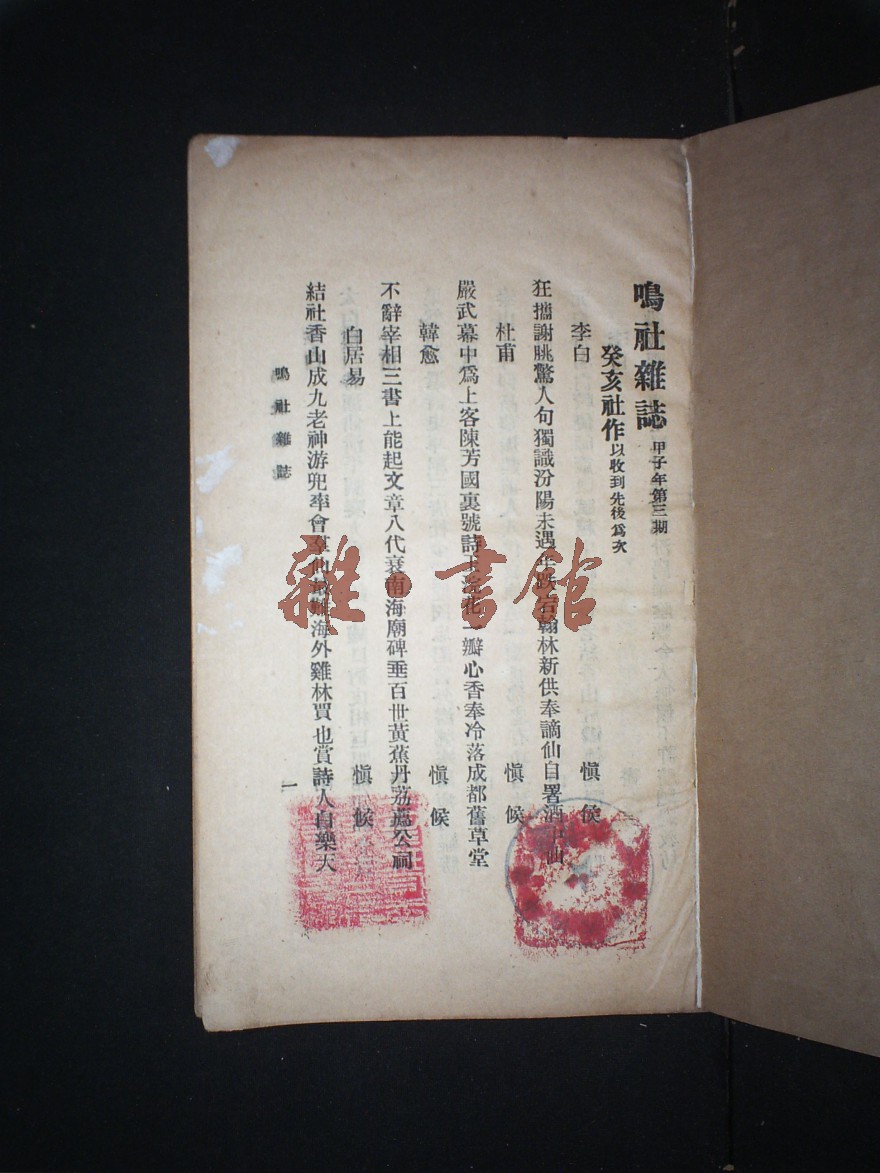 鳴社雜誌 甲子年第三期
癸亥社作 以收到先後為次
李白 慎候
狂搔謝朓驚人句獨識汾陽未遇年跌宕翰林新供奉謫仙自署酒中仙
杜甫 慎候
嚴武幕中為上客陳芳國裏號詩王浣花一瓣心香奉冷落成都舊草堂
韓愈 慎候
不辭宰相三書上能起文章八代衰南海廟碑垂百世黃蕉丹荔薦公祠
白居易 慎候
結社香山成九老神游兜率會羣仙海外雞林賈也賞詩人白樂天
鳴社雜誌
一
雜·書館